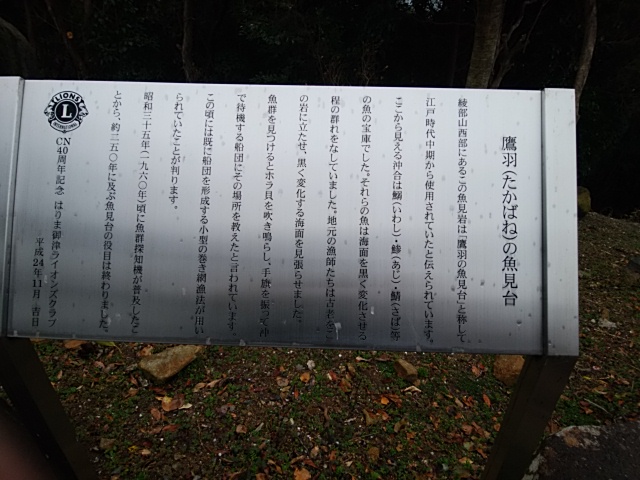 鷹羽(たかばね)の魚見台
綾部山西部にあるこの魚見岩は「鷹羽の魚見台」と称して
江戸時代中期から使用されていたと伝えられています。
ここから見える沖合は鰯(いわし)・鰺(あじ)・鯖(さば)等
の魚の宝庫でした。それらの魚は海面を黒く変化させる
程の群れをなしていました。地元の漁師たちは古老をこ
の岩に立たせ、黒く変化する海面を見張らせました。
魚群を見つけるとホラ貝を吹き鳴らし、手旗を振って沖
で待機する船団にその場所を教えたと言われています。
この頃には既に船団を形成する小型の巻き網漁法が用い
られていたことが判ります。
昭和三十五年(一九六〇年)頃に魚群探知機が普及したこ
とから、約二五〇年に及ぶ魚見台の役目は終わりました。
LIONS
L
INTERNATIONAL
CN40周年記念 はりま御津ライオンズクラブ
平成24年11月 吉日